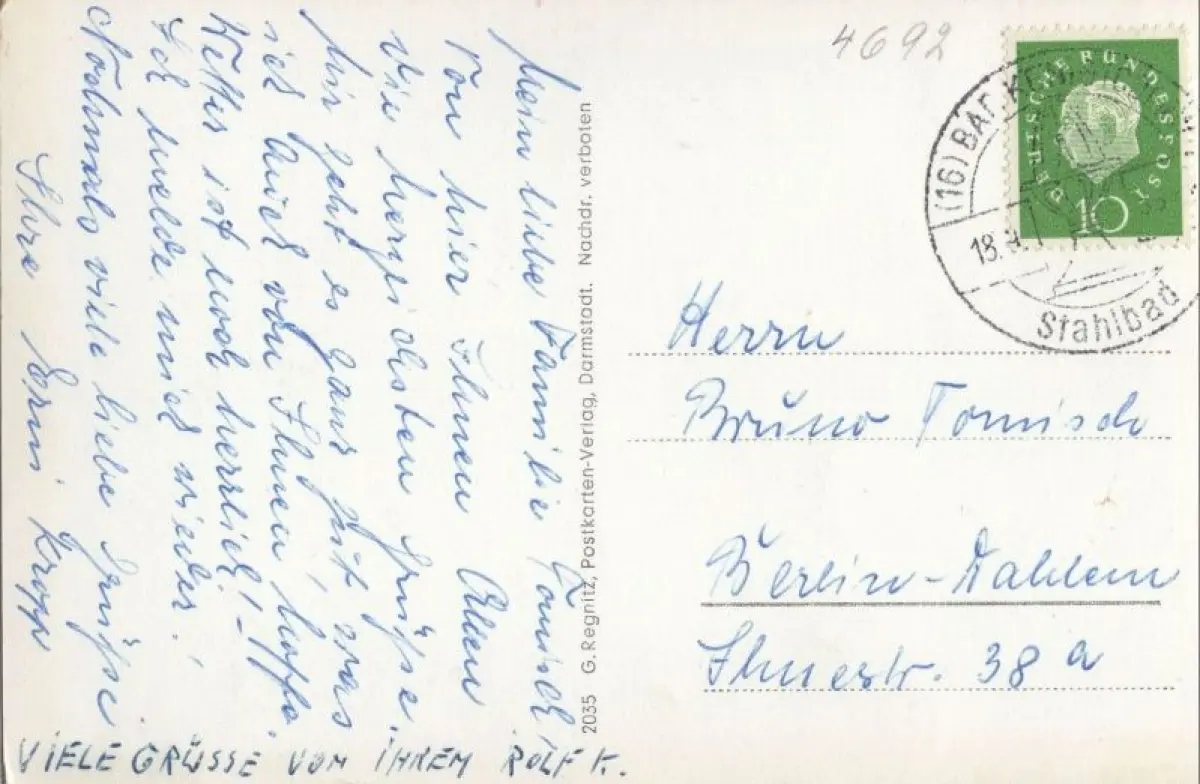 Meine liebe Familie Tomisch!
Von hier Ihnen Allen
die herzlichsten Grüße.
Mir geht es ganz gut, was
ich auch von Ihnen hoffe.
Wetter ist noch herrlich! -
Ich melde mich wieder!
Nochmals viele liebe Grüße
Ihre Erni Kropp
VIELE GRÜSSE VON IHREM ROLF K.
2035 G. Regnitz, Postkarten-Verlag, Darmstadt. Nachdr. verboten
4692
DEUTSCHE BUNDESPOST
10
(16) BAD
18.
Stahlbad
Herrn
Bruno Tomisch
Berlin-Dahlem
Ihnestr. 38a